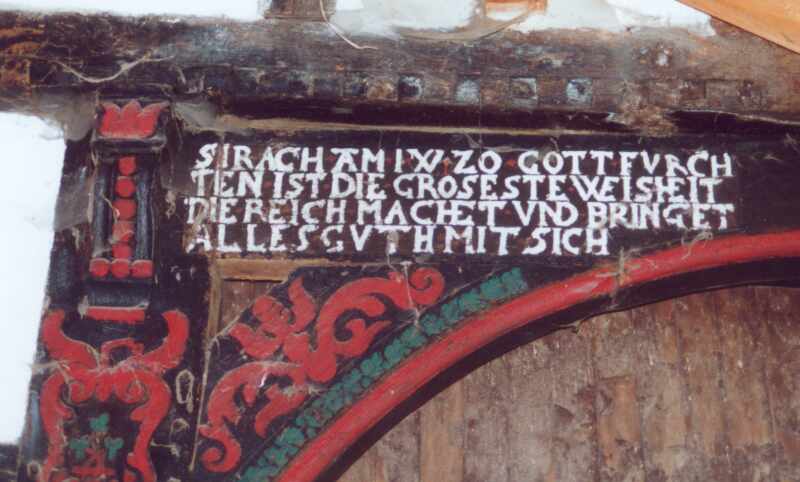 SIRACH AM I W. ZO GOTT FVRCH
TEN IST DIE GROSESTE WEISHEIT
DIE REICH MACHET VND BRINGET
ALLES GVTH MIT SICH